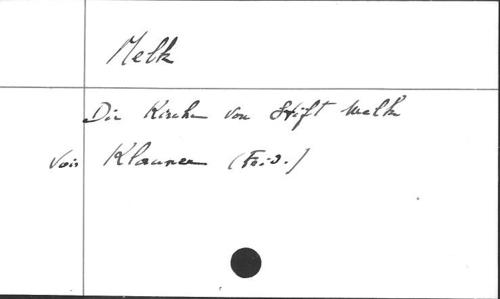 Melk
Die Kirche von Stift Melk
Klauner (Frid.)